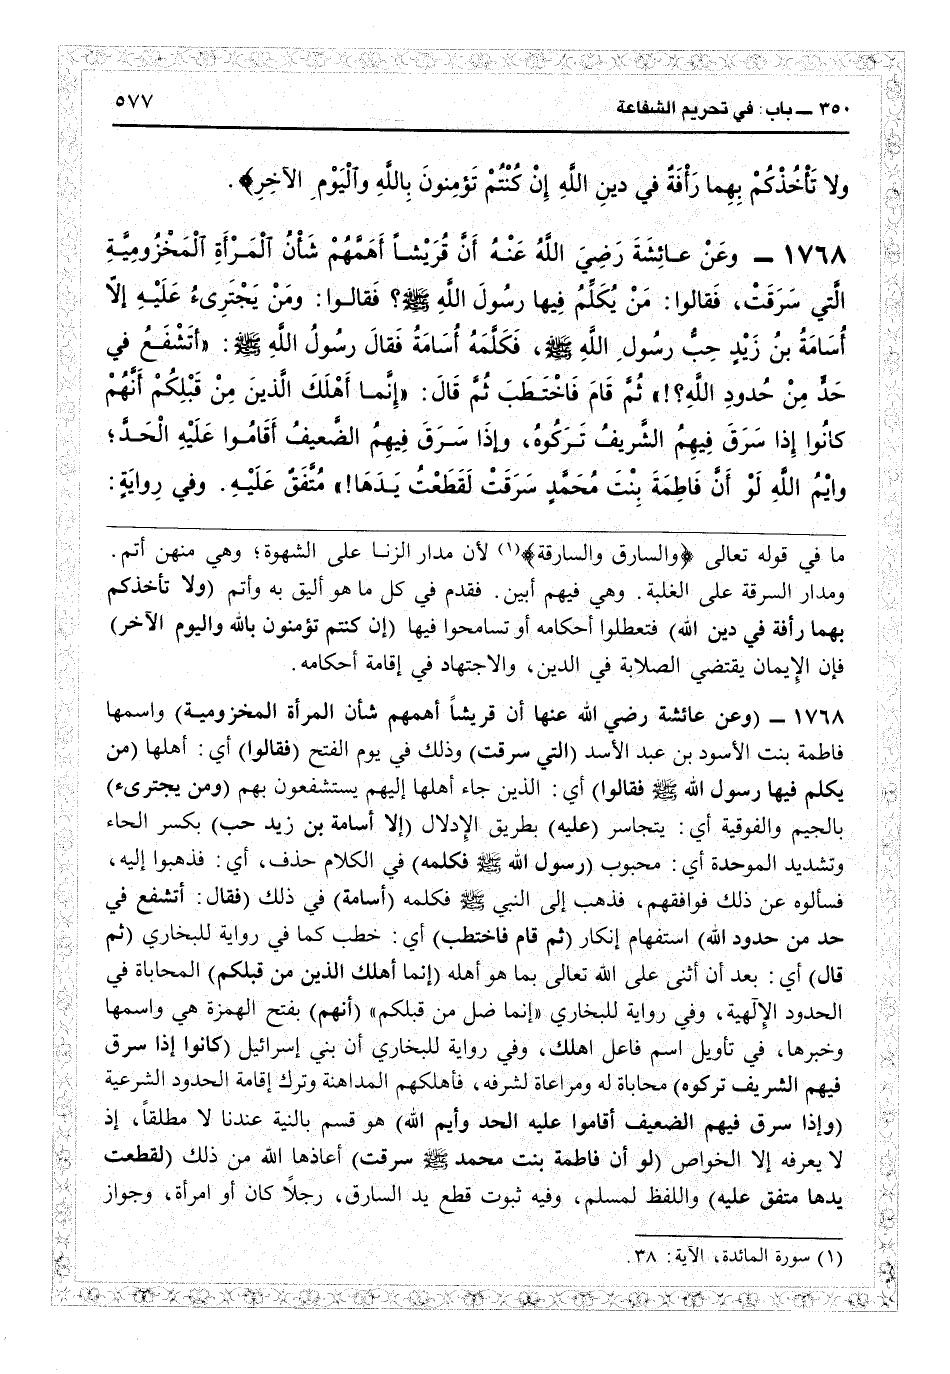 ٣٥٠ ــ باب: في تحريم الشفاعة ٥٧٧
ولا تَأْخُذْكُمْ بِهِما رَأْفَةٌ في دينِ اللَّهِ إِنْ كُنْتُمْ تَؤمِنونَ بِاللَّهِ والْيَوْمِ الآخِرِ﴾.
١٧٦٨ ــ وعَنْ عـائِشَةَ رَضِيَ اللَّهُ عَنْـهُ أَنَّ قُرَيْشـاً أَهَمَّهُمْ شَأْنُ الْمَـرْأَةِ الْمَخْزُومِيَّـةِ
الَّتي سَرَقَتْ، فَقالوا: مَنْ يُكَلِّمُ فيها رسُولَ اللَّهِ ﷺ؟ فَقالـوا: ومَنْ يَجْتَرِىءُ عَلَيْـهِ إلاّ
أُسَامَةُ بنُ زَيْدٍ حِبُّ رسُولِ اللَّهِ ﷺ، فَكَلَّمَهُ أُسَامَةُ فَقالَ رسُولُ اللَّهِ ﷺ: «أَتَشْفَعُ في
حَدٍّ مِنْ حُدودِ اللَّهِ؟!» ثُمَّ قامَ فَاخْتَطَبَ ثُمَّ قَالَ: «إِنَّمـا أَهْلَكَ الَّذينَ مِنْ قَبْلِكُمْ أَنَّهُمْ
كانُوا إذَا سَرَقَ فِيهِمُ الشَّرِيفُ تَـرَكُوهُ، وإذَا سَـرَقَ فيهِمُ الضَّعيفُ أَقَامُوا عَلَيْهِ الْحَـدَّ؛
وايْمُ اللَّهِ لَوْ أَنَّ فَاطِمَةَ بِنْتَ مُحَمَّدٍ سَرَقَتْ لَقَطَعْتُ يَـدَهَا!» مُتَّفَقٌ عَلَيْـهِ. وفي رِوايَةٍ:
ما في قوله تعالى ﴿والسارق والسارقة﴾(١) لأن مدار الزنـا على الشهوة؛ وهي منهن أتم.
ومدار السرقة على الغلبة. وهي فيهم أبين. فقدم في كل ما هو أليق به وأتم (ولا تأخذكم
بهما رأفة في دين الله) فتعطلوا أحكامه أو تسامحوا فيها (إن كنتم تؤمنون بالله واليوم الآخر)
فإن الإيمان يقتضي الصلابة في الدين، والاجتهاد في إقامة أحكامه.
١٧٦٨ ــ (وعن عائشة رضي الله عنها أن قريشاً أهمهم شأن المرأة المخزوميـة) واسمها
فاطمة بنت الأسود بن عبد الأسد (التي سرقت) وذلك في يوم الفتح (فقالوا) أي: أهلها (من
يكلم فيها رسول الله ﷺ فقالوا) أي: الذين جاء أهلها إليهم يستشفعون بهم (ومن يجترىء)
بالجيم والفوقية أي: يتجاسر (عليه) بطريق الإدلال (إلا أسامة بن زيد حب) بكسر الحاء
وتشديد الموحدة أي: محبوب (رسول الله ﷺ فكلمه) في الكلام حذف، أي: فذهبوا إليه،
فسألوه عن ذلك فوافقهم، فذهب إلى النبي ﷺ فكلمه (أسامة) في ذلك (فقال: أتشفع في
حد من حدود الله) استفهام إنكار (ثم قام فاختطب) أي: خطب كما في رواية للبخاري (ثم
قال) أي: بعد أن أثنى على الله تعالى بما هو أهله (إنما أهلك الذين من قبلكم) المحاباة في
الحدود الإلهية، وفي رواية للبخاري «إنما ضل من قبلكم» (أنهم) بفتح الهمزة هي واسمها
وخبرها، في تأويل اسم فاعل اهلك، وفي رواية للبخاري أن بني إسرائيل (كانوا إذا سرق
فيهم الشريف تركوه) محاباة له ومراعاة لشرفه، فأهلكهم المداهنة وترك إقامة الحدود الشرعية
(وإذا سرق فيهم الضعيف أقاموا عليه الحد وأيم الله) هو قسم بالنية عندنا لا مطلقاً، إذ
لا يعرفه إلا الخواص (لو أن فاطمة بنت محمد ﷺ سرقت) أعاذها الله من ذلك (لقطعت
يدها متفق عليه) واللفظ لمسلم، وفيه ثبوت قطع يد السارق، رجلاً كان أو امرأة، وجواز
(١) سورة المائدة، الآية: ٣٨.